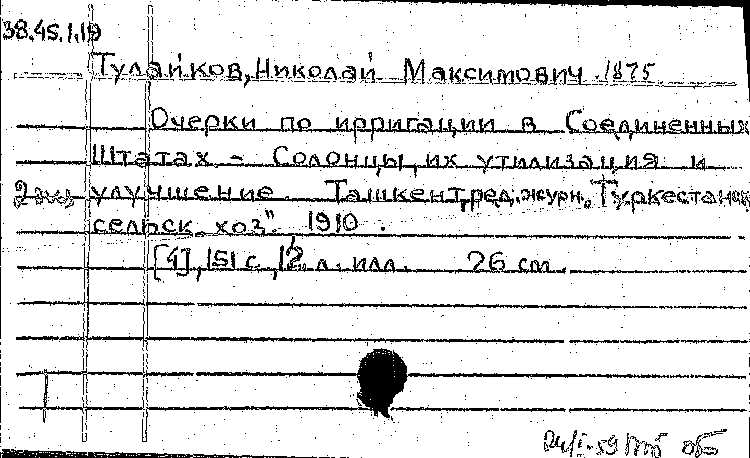 38.45.1.19
Тулайков, Николай Максимович. 1875
Очерки по ирригации в Соединенных
Штатах - Солонцы, их утилизация и
2 экз улучшение. Ташкент, ред. журн. "Туркестанск
сельск. хоз". 1910.
[4], 151 с., 12 л. илл. 26 см.